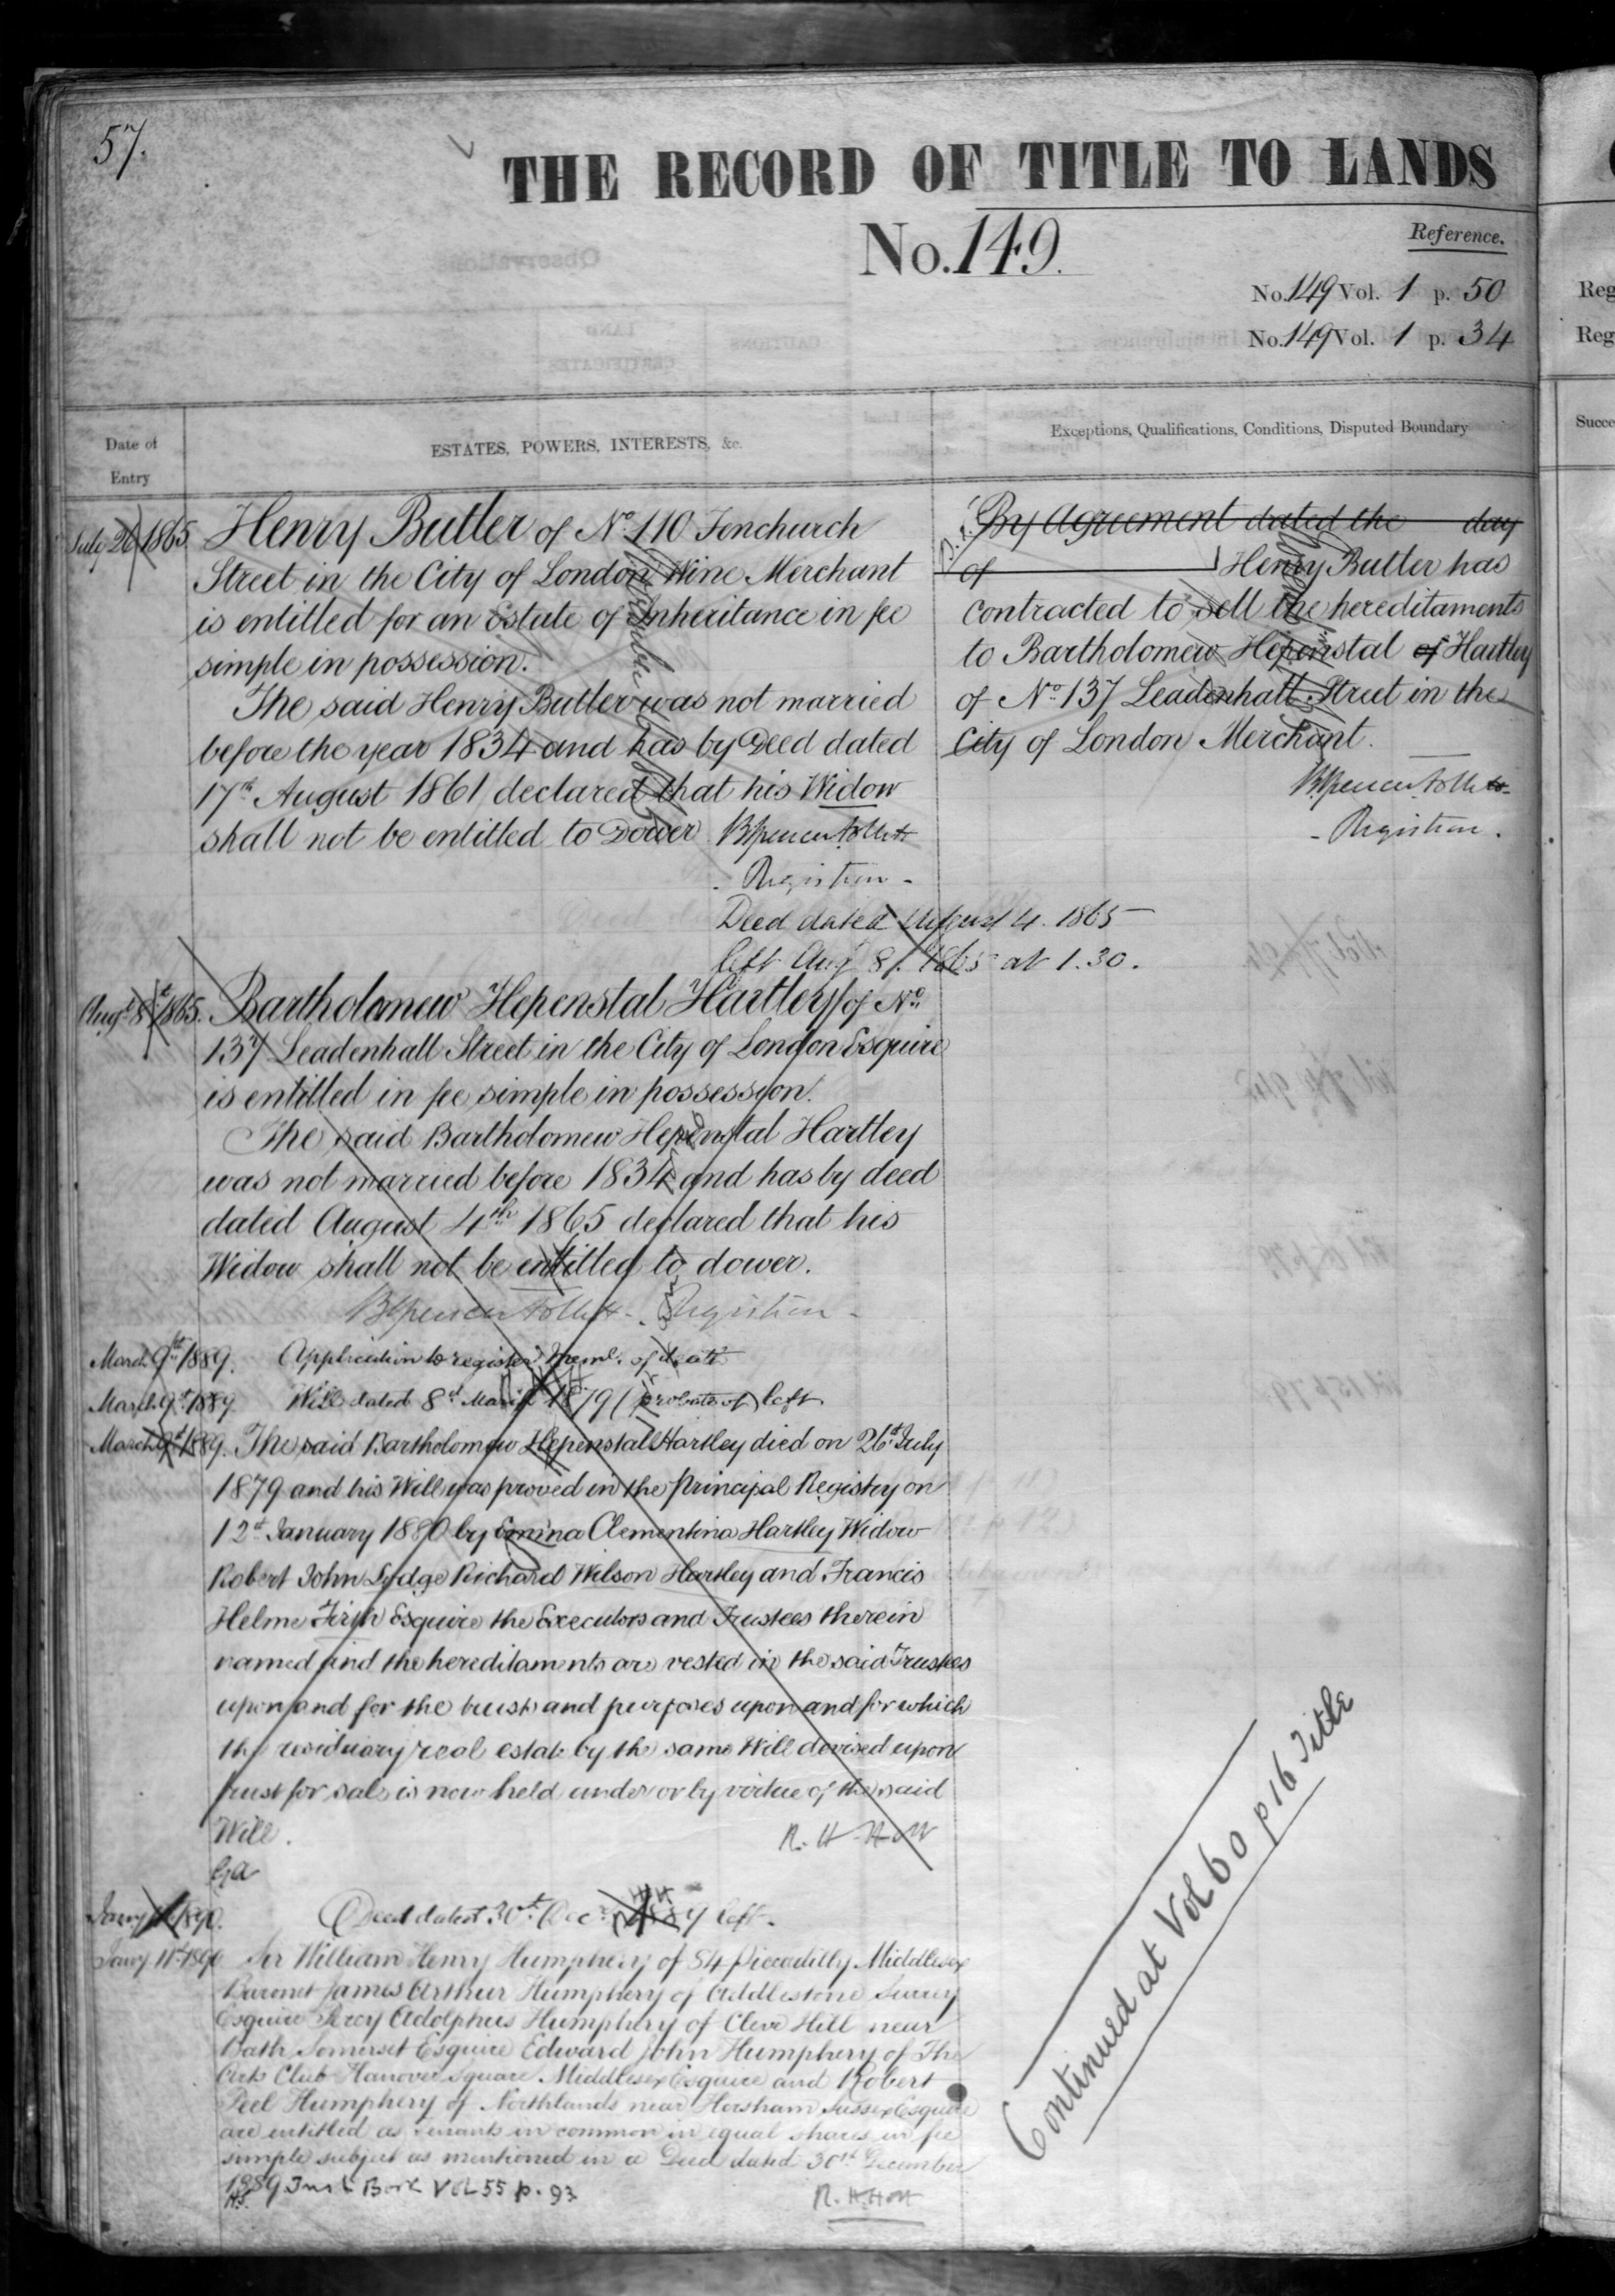 57.
THE RECORD OF TITLE TO LANDS
No. 149.
Reference.
No. 149 Vol. 1 p. 50
No. 149 Vol. 1 p. 34
Date of
Entry
ESTATES, POWERS, INTERESTS, &c.
Exceptions, Qualifications, Conditions, Disputed Boundary
July 26 1865
Henry Butler of No. 110 Fenchurch
Street in the City of London Wine Merchant
is entitled for an Estate of Inheritance in fee
simple in possession.
The said Henry Butler was not married
before the year 1834 and has by Deed dated
17th August 1861 declared that his Widow
shall not be entitled to Dower
Registrar
By Agreement dated the day
of Henry Butler has
contracted to sell the hereditaments
to Bartholomew Hepenstal of Hartley
of No. 137 Leadenhall Street in the
City of London Merchant.
Registrar.
Deed dated August 4. 1865
left Augt 8. 1865 at 1.30.
Augt 8th 1865.
Bartholomew Hepenstal Hartley of No.
137 Leadenhall Street in the City of London Esquire
is entitled in fee simple in possession.
The said Bartholomew Hepenstal Hartley
was not married before 1834 and has by deed
dated August 4th 1865 declared that his
Widow shall not be entitled to dower.
Registrar
March 9th 1889. Application to register Meml. of death
March 9th 1889 Will dated 8th March 1879 (probate of) left
March 9th 1889. The said Bartholomew Hepenstal Hartley died on 26th July
1879 and his Will was proved in the Principal Registry on
12th January 1880 by Emina Clementina Hartley Widow
Robert John Lydge Richard Wilson Hartley and Francis
Helme Firth Esquire the Executors and Trustees therein
named and the hereditaments are vested in the said Trustees
upon and for the trusts and purposes upon and for which
the residuary real estate by the same Will devised upon
trust for sale is now held under or by virtue of the said
Will.
R. H. Holt
Jany 1890. Deed dated 30th Dec. 1889 left.
Jany 11th 1890 Sir William Henry Humphery of 84 Piccadilly Middlesex
Baronet James Arthur Humphery of Addlestone Surrey
Esquire Percy Adolphus Humphery of Cleve Hill near
Bath Somerset Esquire Edward John Humphery of The
Arts Club Hanover Square Middlesex Esquire and Robert
Peel Humphery of Northlands near Horsham Sussex Esquire
are entitled as Tenants in common in equal shares in fee
simple subject as mentioned in a Deed dated 30th December
1889 Inst Book Vol 55 p. 93
R. H. Holt
Continued at Vol 60 p 16 Title